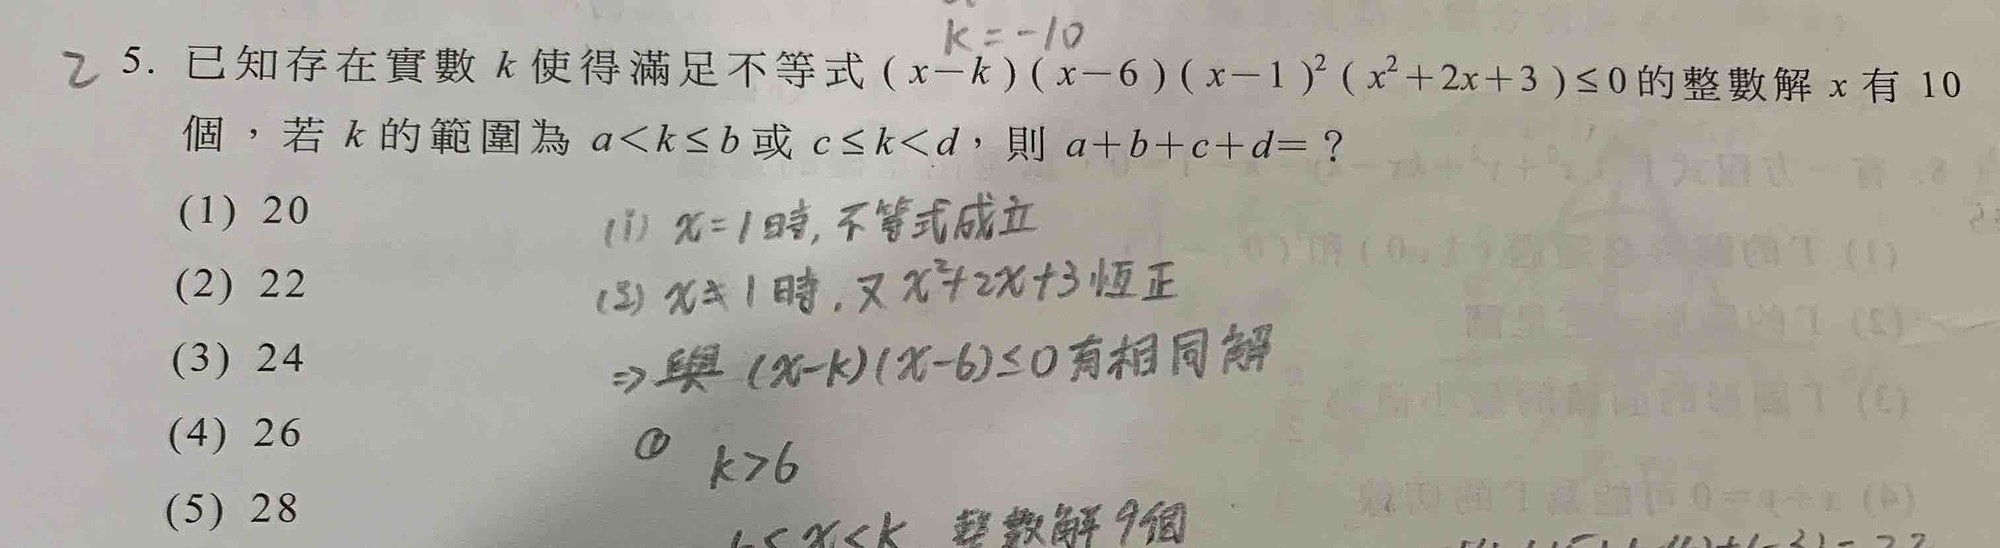 k=-10
2 5. 已知存在實數 k 使得滿足不等式 (x-k)(x-6)(x-1)²(x²+2x+3)≤0 的整數解 x 有 10
個,若 k 的範圍為 a<k≤b 或 c≤k<d,則 a+b+c+d=?
(1) 20
(i) x=1時,不等式成立
(2) 22
(2) x≠1時,又 x²+2x+3恆正
(3) 24
⇒與 (x-k)(x-6)≤0有相同解
(4) 26
① k>6
(5) 28
6≤x≤k 整數解9個